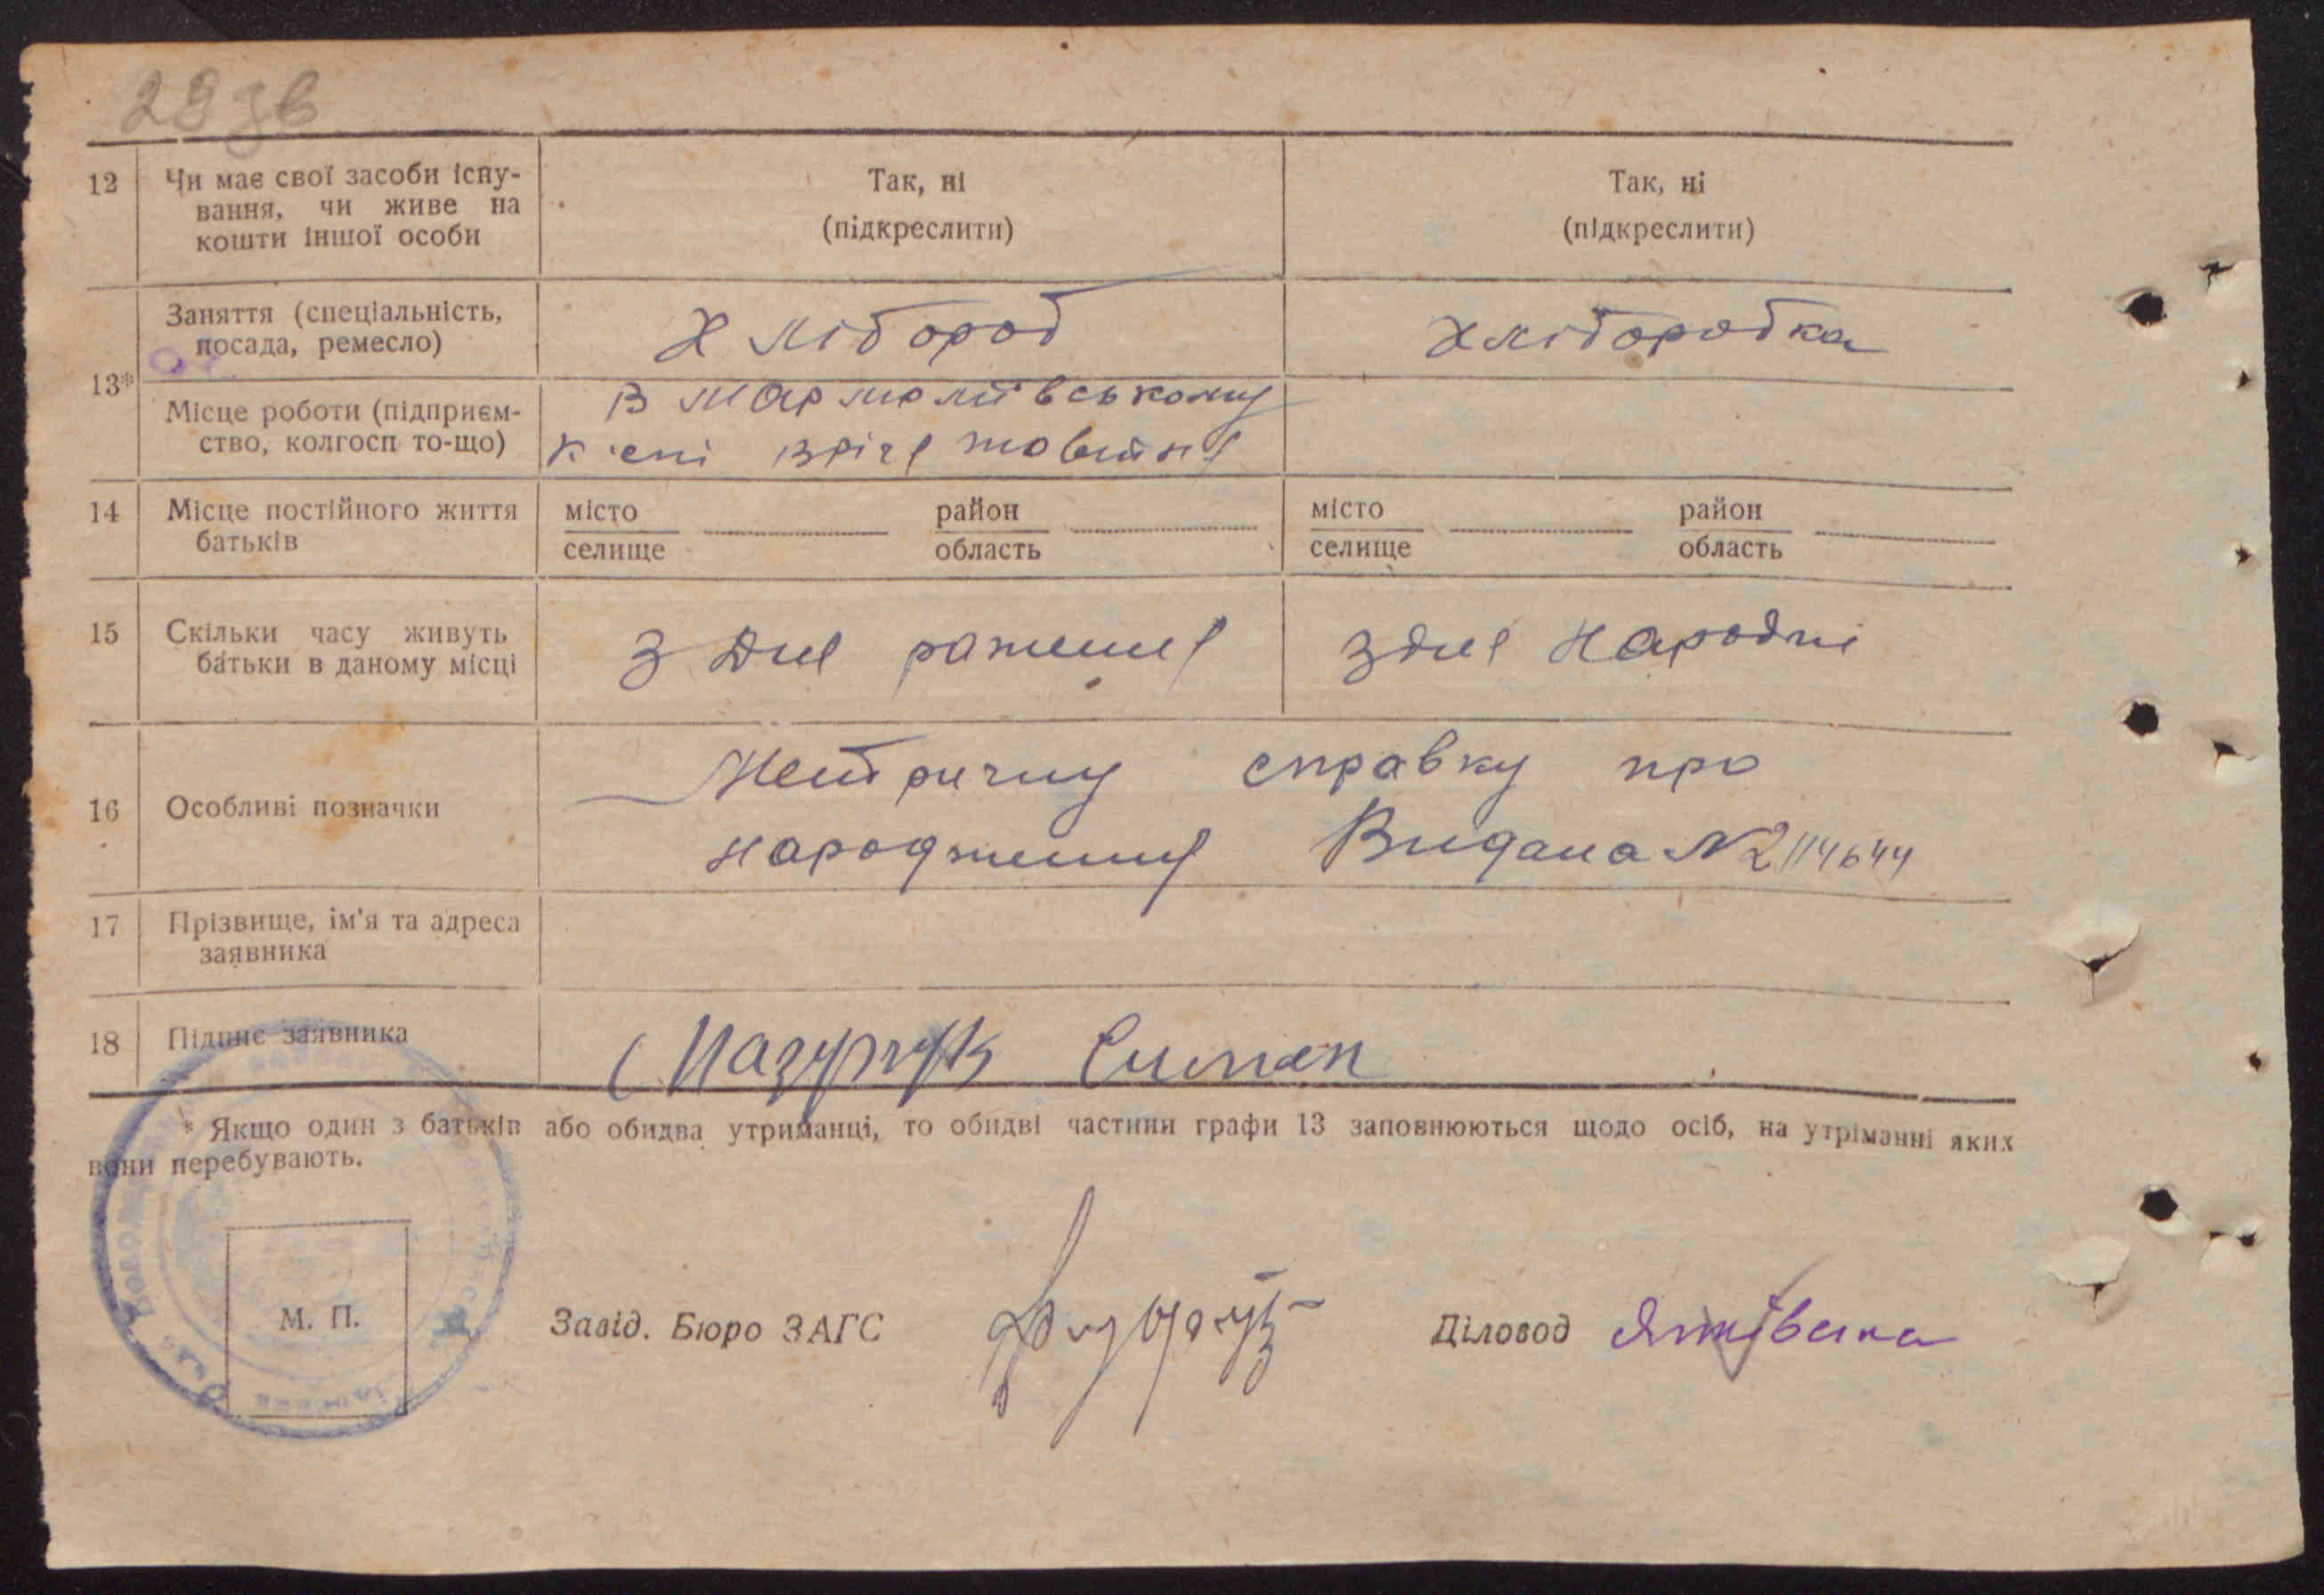 29 зв
12 Чи має свої засоби існу- Так, ні Так, ні
вання, чи живе на (підкреслити) (підкреслити)
кошти іншої особи
Заняття (спеціальність, Хлібороб Хліборобка
посада, ремесло)
13*
Місце роботи (підприєм- В
ство, колгосп то-що)
14 Місце постійного життя місто район місто район
батьків селище область селище область
15 Скільки часу живуть З дня рожения З дня народж
батьки в даному місці
Метричну справку про
16 Особливі позначки
народження Видана № 114644
17 Прізвище, ім'я та адреса
заявника
18 Підпис заявника Мазурчук Степан
* Якщо один з батьків або обидва утриманці, то обидві частини графи 13 заповнюються щодо осіб, на утріманні яких
вони перебувають.
М. П. Завід. Бюро ЗАГС Діловод